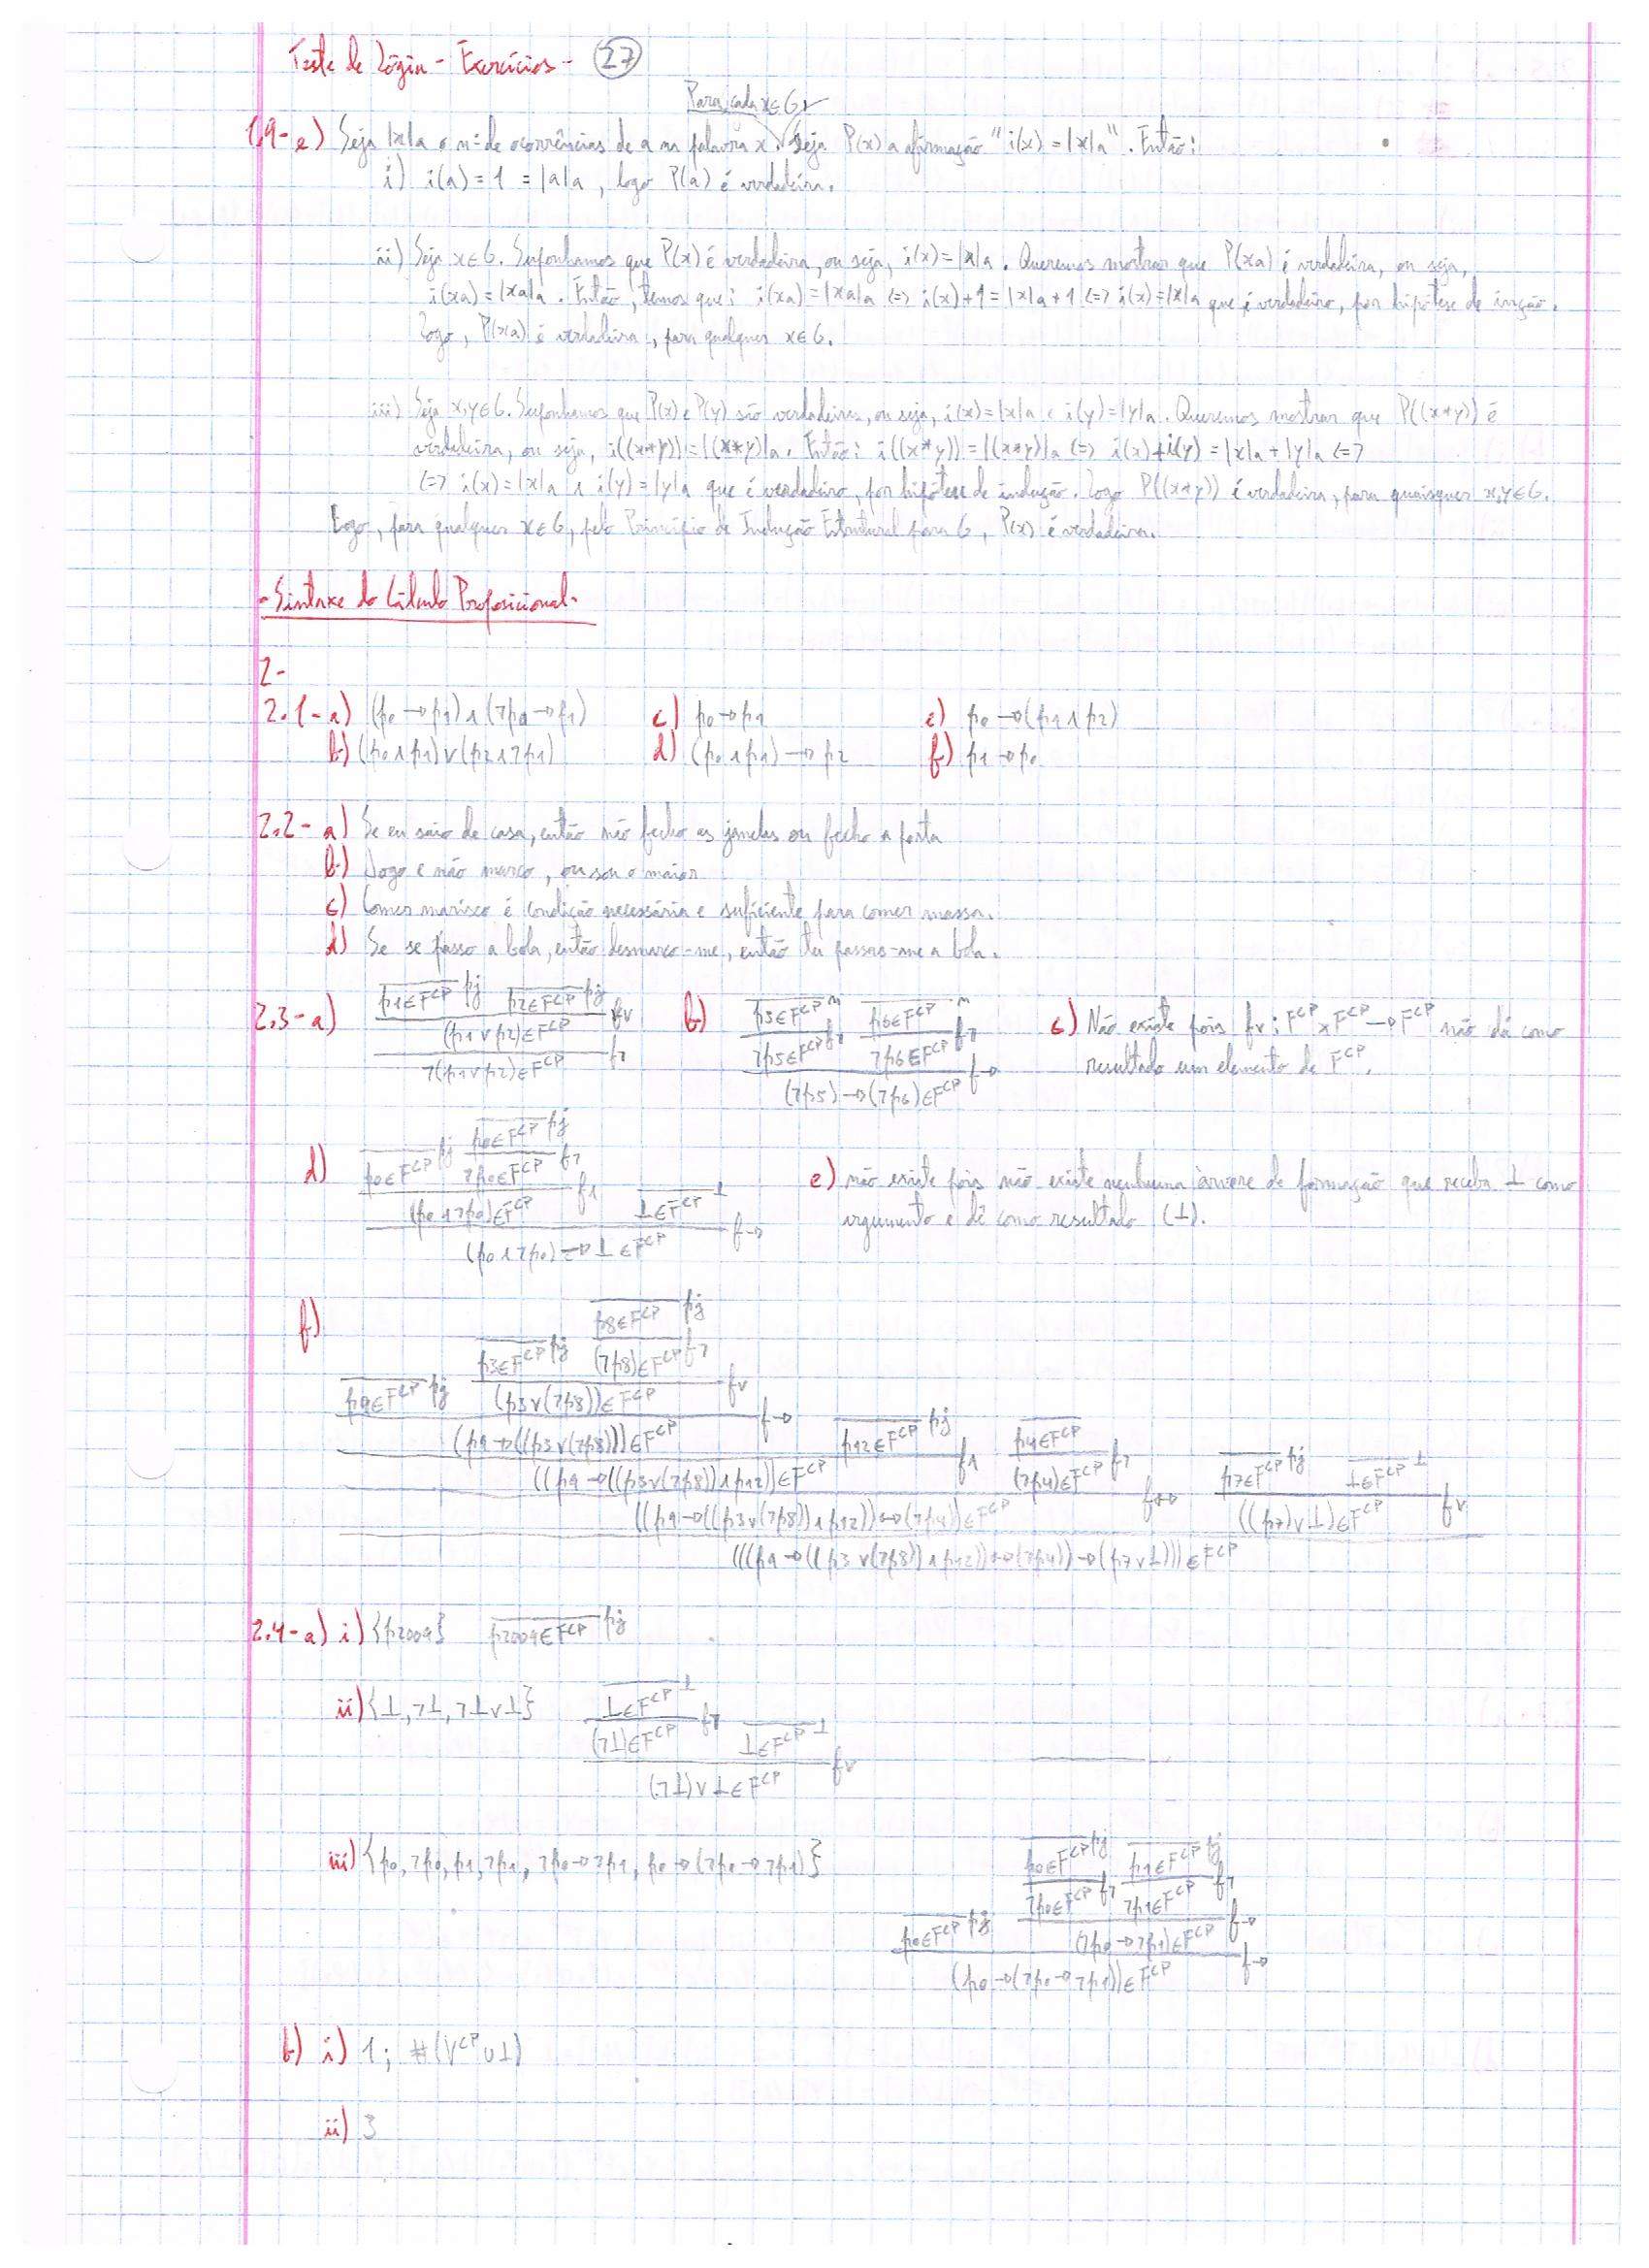 Teste de Lógica - Exercícios - 27
Para cada x∈G,
1.9-e) Seja |x|a o nº de ocorrências de a na palavra x. Seja P(x) a afirmação "i(x) = |x|a". Então:
i) i(a) = 1 = |a|a, logo P(a) é verdadeira.
ii) Seja x∈G. Suponhamos que P(x) é verdadeira, ou seja, i(x)=|x|a. Queremos mostrar que P(xa) é verdadeira, ou seja,
i(xa)=|xa|a. Então, temos que: i(xa)=|xa|a <=> i(x)+1=|x|a+1 <=> i(x)=|x|a que é verdadeiro, por hipótese de inção.
Logo, P(xa) é verdadeira, para qualquer x∈G.
iii) Seja x,y∈G. Suponhamos que P(x) e P(y) são verdadeiras, ou seja, i(x)=|x|a e i(y)=|y|a. Queremos mostrar que P((x*y)) é
verdadeira, ou seja, i((x*y))=|(x*y)|a. Então: i((x*y))=|(x*y)|a <=> i(x)+i(y)=|x|a+|y|a <=>
<=> i(x)=|x|a ∧ i(y)=|y|a que é verdadeiro, por hipótese de indução. Logo P((x*y)) é verdadeira, para quaisquer x,y∈G.
Logo, para qualquer x∈G, pelo Princípio de Indução Estrutural para G, P(x) é verdadeira.
- Sintaxe do Cálculo Proposicional -
2-
2.1-a) (p0→p1)∧(¬p0→p1) c) p0→p1 e) p0→(p1∧p2)
b) (p0∧p1)∨(p2∧¬p1) d) (p0∧p1)→p2 f) p1→p0
2.2-a) Se eu saio de casa, então não fecho as janelas ou fecho a porta
b) Jogo e não marco, ou sou o maior
c) Comer marisco é condição necessária e suficiente para comer massa.
d) Se se passo a bola, então desmarco-me, então tu passas-me a bola.
2.3-a) p1∈F^CP pj p2∈F^CP pj b) p5∈F^CP n p6∈F^CP n c) Não existe pois f∨: F^CP×F^CP→F^CP não dá como
(p1∨p2)∈F^CP f∨ ¬p5∈F^CP f¬ ¬p6∈F^CP f¬ resultado um elemento de F^CP.
¬(p1∨p2)∈F^CP f¬ (¬p5)→(¬p6)∈F^CP f→
p0∈F^CP pj
d) p0∈F^CP pj ¬p0∈F^CP f¬ e) não existe pois não existe nenhuma árvore de formação que receba ⊥ como
(p0∧¬p0)∈F^CP f∧ ⊥∈F^CP ⊥ argumento e dê como resultado (⊥).
(p0∧¬p0)→⊥∈F^CP f→
f) p8∈F^CP pj
p3∈F^CP pj (¬p8)∈F^CP f¬
p9∈F^CP pj (p3∨(¬p8))∈F^CP f∨
(p9→((p3∨(¬p8)))∈F^CP f→ p12∈F^CP pj p4∈F^CP
((p9→((p3∨(¬p8))∧p12))∈F^CP f∧ (¬p4)∈F^CP f¬ p7∈F^CP pj ⊥∈F^CP ⊥
((p9→((p3∨(¬p8))∧p12))↔(¬p4))∈F^CP f↔ ((p7)∨⊥)∈F^CP f∨
(((p9→((p3∨(¬p8))∧p12))↔(¬p4))→(p7∨⊥)))∈F^CP
2.4-a) i) {p2009} p2009∈F^CP pj
ii) {⊥,¬⊥,¬⊥∨⊥} ⊥∈F^CP ⊥
(¬⊥)∈F^CP f¬ ⊥∈F^CP ⊥
(¬⊥)∨⊥∈F^CP f∨
iii) {p0,¬p0,p1,¬p1,¬p0→¬p1,p0→(¬p0→¬p1)} p0∈F^CP pj p1∈F^CP pj
¬p0∈F^CP f¬ ¬p1∈F^CP f¬
p0∈F^CP pj (¬p0→¬p1)∈F^CP f→
(p0→(¬p0→¬p1))∈F^CP f→
b) i) 1; #(V^CP∪⊥)
ii) 3